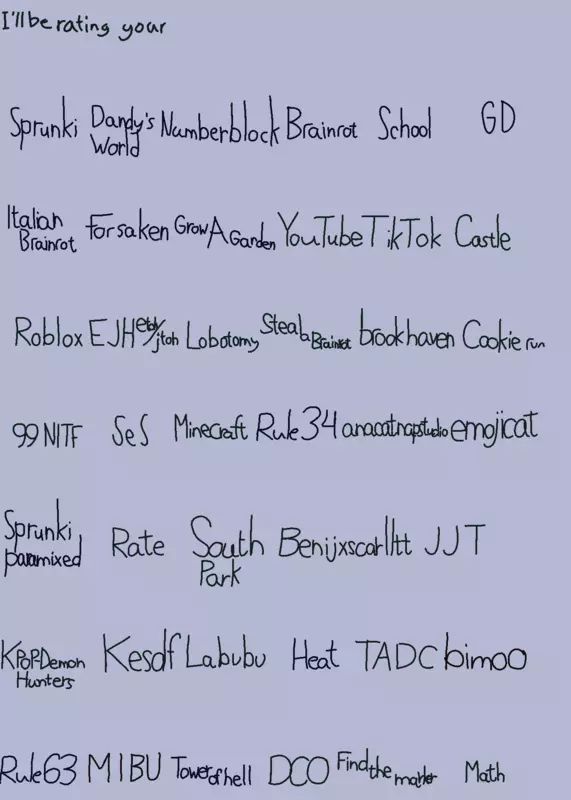 I'll be rating your
Sprunki Dandy's World Numberblock Brainrot School GD
Italian Brainrot Forsaken Grow A Garden YouTube TikTok Castle
Roblox EJH Lobotomy Steal a Brainrot brookhaven Cookie run
99 NITF SeS Minecraft Rule 34 anacatnapstudio emojicat
Sprunki paramixed Rate South Park Benijxscarlltt JJT
KPOP Demon Hunters Kesdf Labubu Heat TADC bimoo
Rule 63 MIBU Tower of hell DCO Find the marker Math